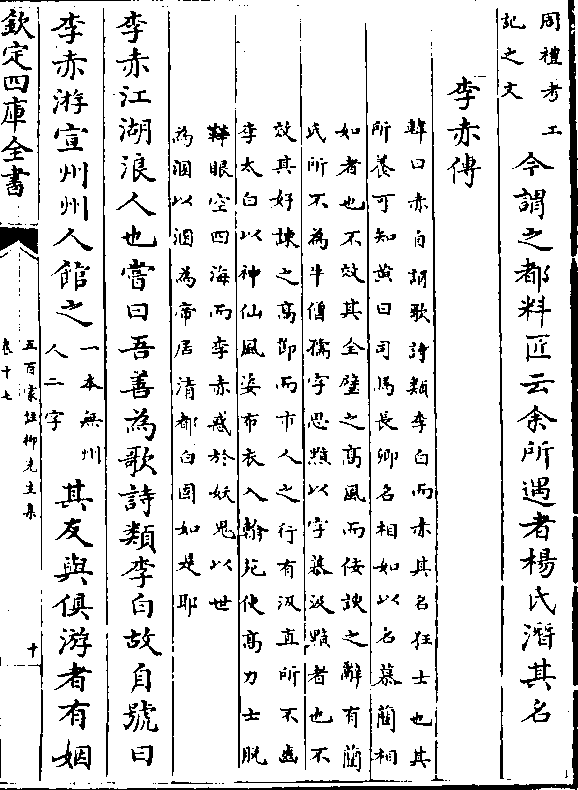 周禮考工
記之文
今謂之都料匠云余所遇者楊氏潛其名
李赤傳
韓曰赤自謂歌詩類李白而赤其名狂士也其
所養可知黄曰司馬長卿名相如以名慕藺相
如者也不效其全璧之高風而佞諛之辭有藺
氏所不為牛僧孺字思黯以字慕汲黯者也不
效其好諫之高節而市人之行有汲直所不齒
李太白以神仙風姿布衣入翰苑使高力士脱
鞾眼空四海而李赤惑於妖鬼以世
為溷以溷為帝居清都白固如是耶
李赤江湖浪人也嘗曰吾善為歌詩類李白故自號曰
李赤游宣州州人館之
一本無州
人二字
其友與俱游者有姻
欽定四庫全書
五百家註柳先生集
卷十七
十